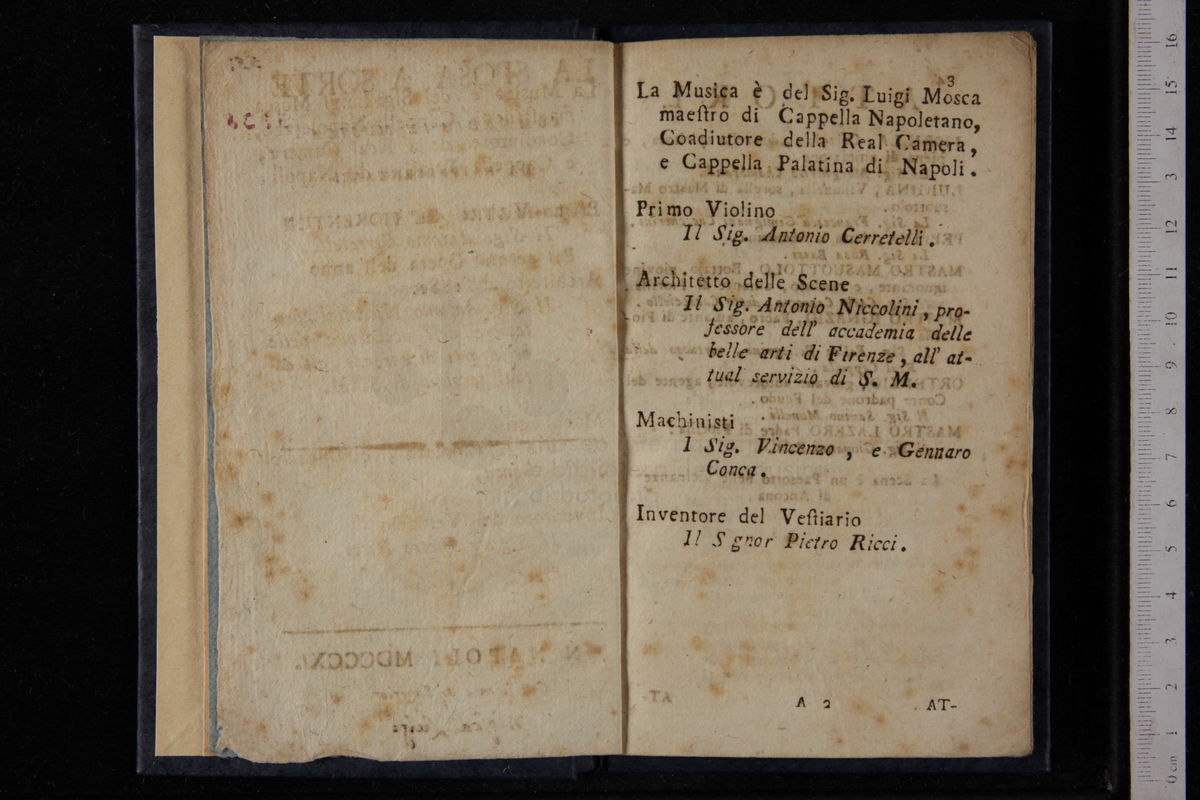 3
La Musica è del Sig. Luigi Mosca
maeſtro di Cappella Napoletano,
Coadiutore della Real Camera,
e Cappella Palatina di Napoli.
Primo Violino
Il Sig. Antonio Cerretelli.
Architetto delle Scene
Il Sig. Antonio Niccolini, pro-
feſſore dell' accademia delle
belle arti di Firenze, all' at-
tual servizio di S. M.
Machinisti
I Sig. Vincenzo, e Gennaro
Conca.
Inventore del Veſtiario
Il S gnor Pietro Ricci.
A 2 AT-
0 cm 1 2 3 4 5 6 7 8 9 10 11 12 13 14 15 16